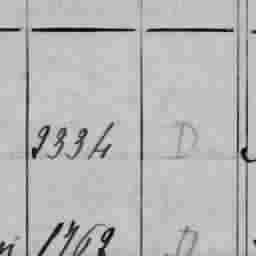 9334 D
1762 D